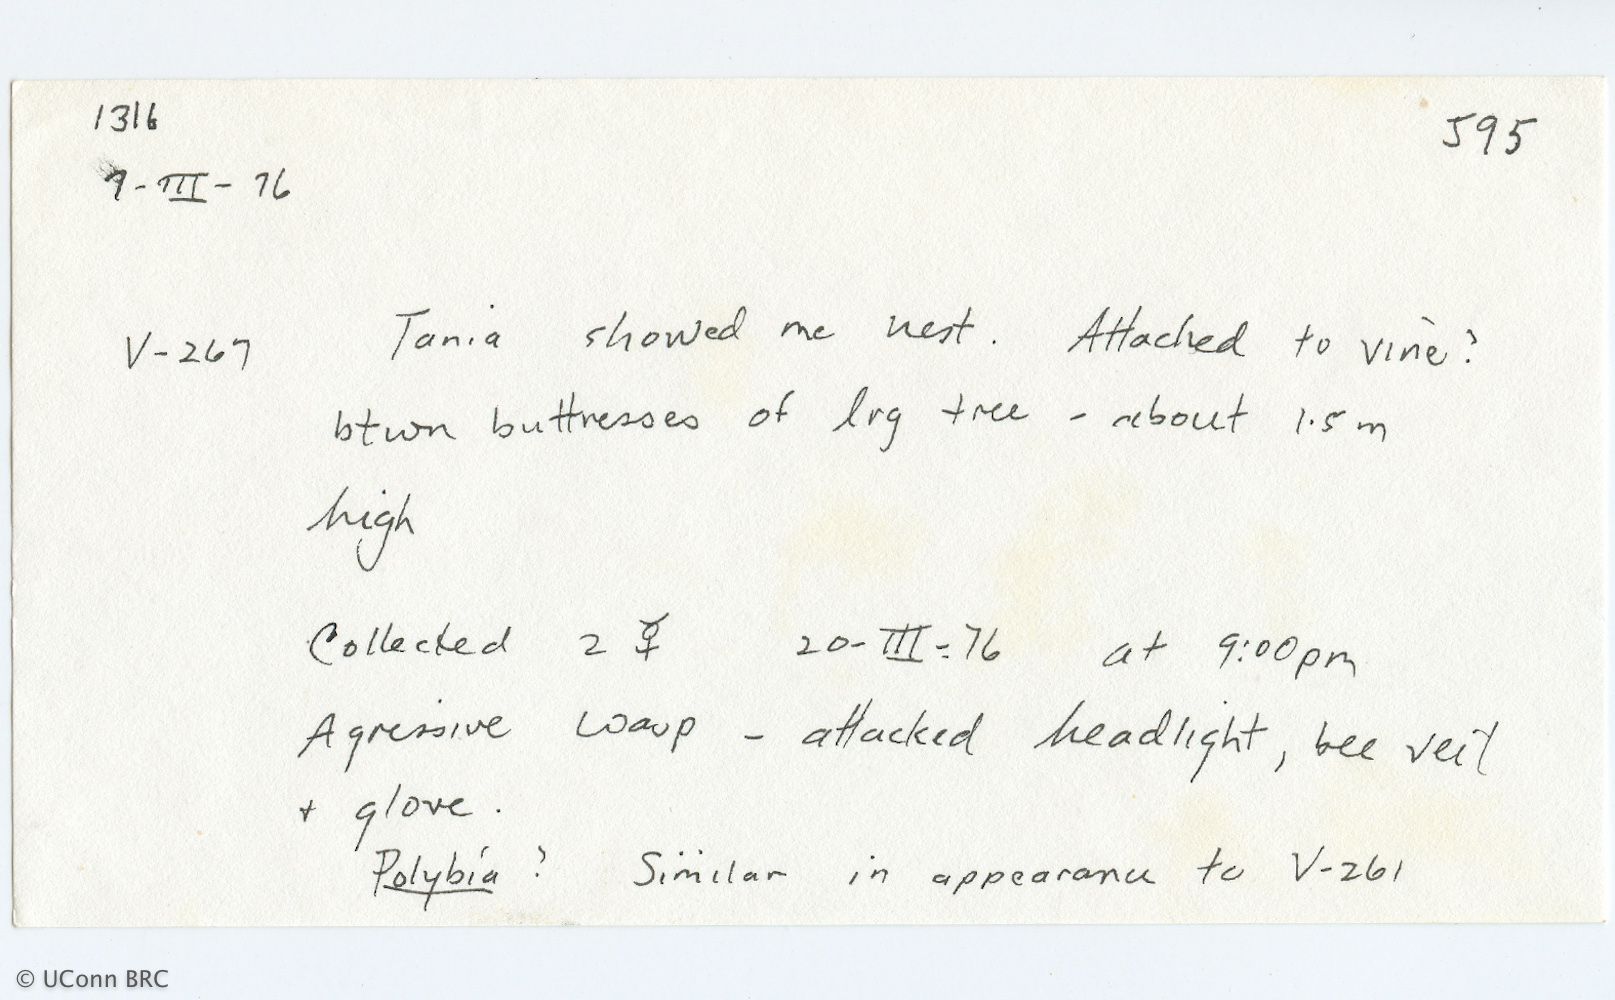 1316
595
9-III-76
V-267 Tania showed me nest. Attached to vine?
btwn buttresses of lrg tree - about 1.5 m
high
Collected 2 ☿ 20-III-76 at 9:00pm
Agressive wasp - attacked headlight, bee veil
+ glove.
Polybia? Similar in appearance to V-261
© UConn BRC